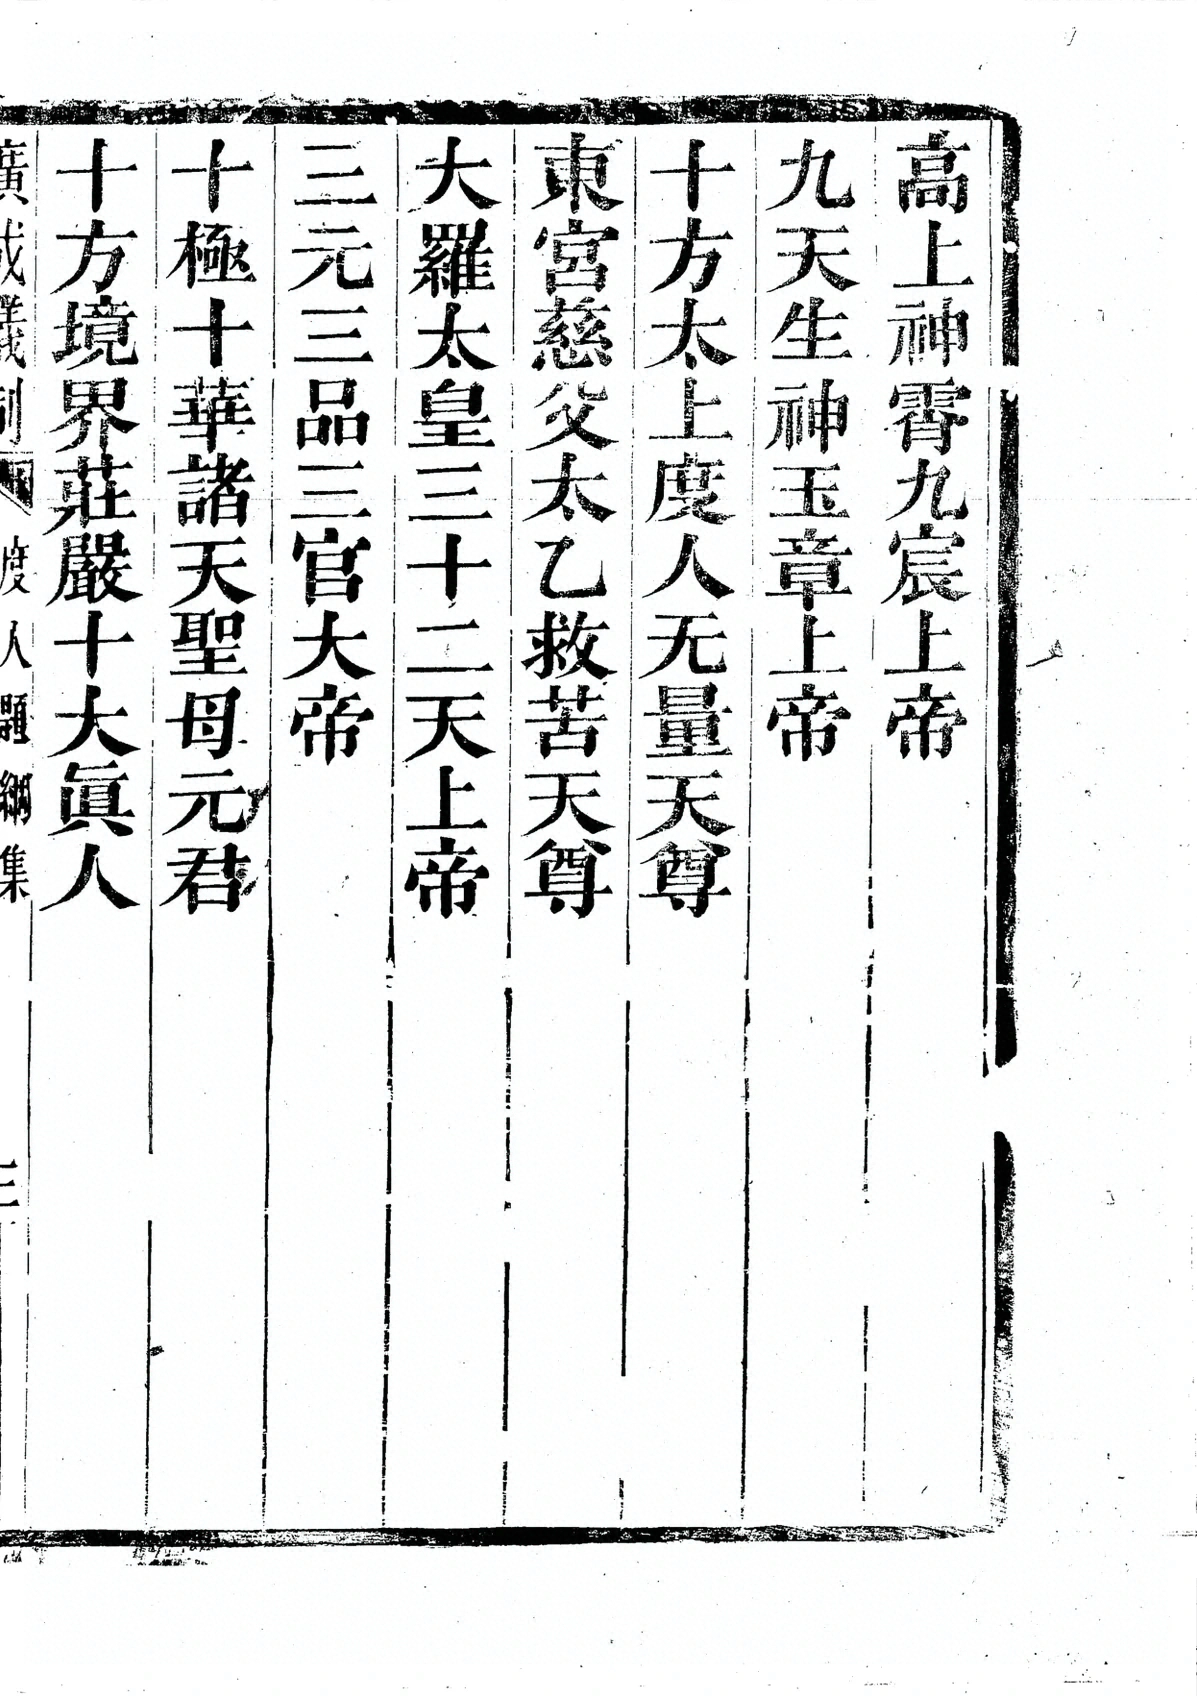 高上神霄九宸上帝
九天生神玉章上帝
十方太上度人无量天尊
東宮慈父太乙救苦天尊
大羅太皇三十二天上帝
三元三品三官大帝
十極十華諸天聖母元君
十方境界莊嚴十大眞人
廣成儀制 度人題綱集 三